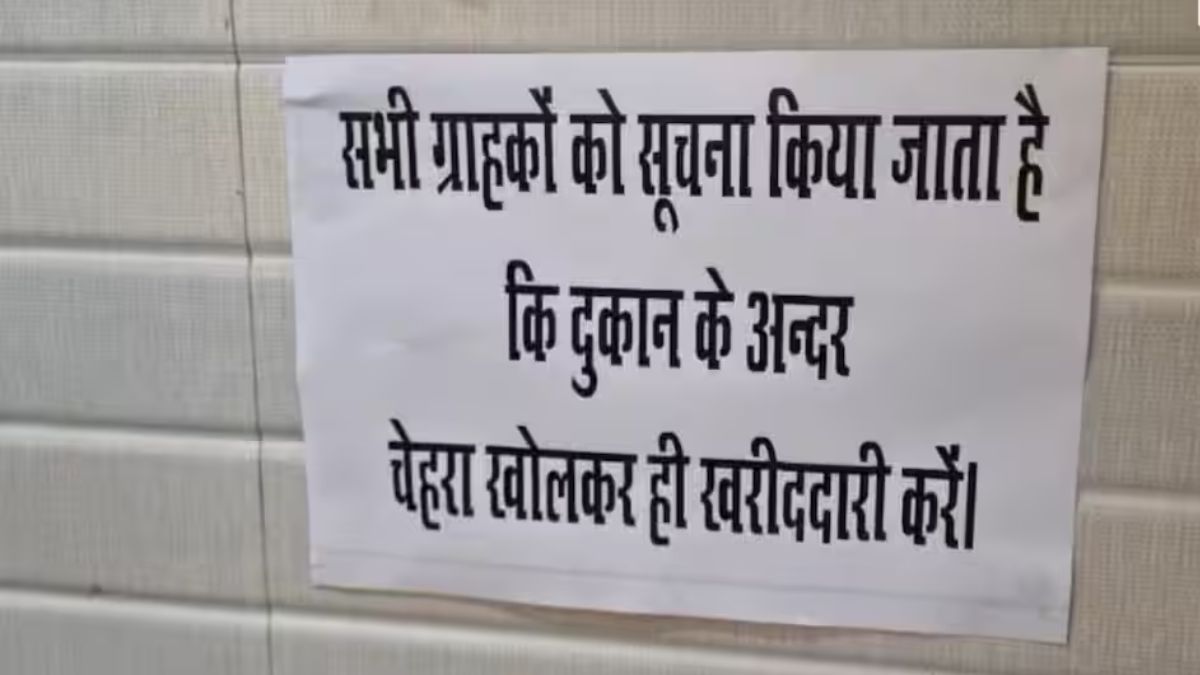 सभी ग्राहकों को सूचना किया जाता है
कि दुकान के अन्दर
चेहरा खोलकर ही खरीददारी करें।